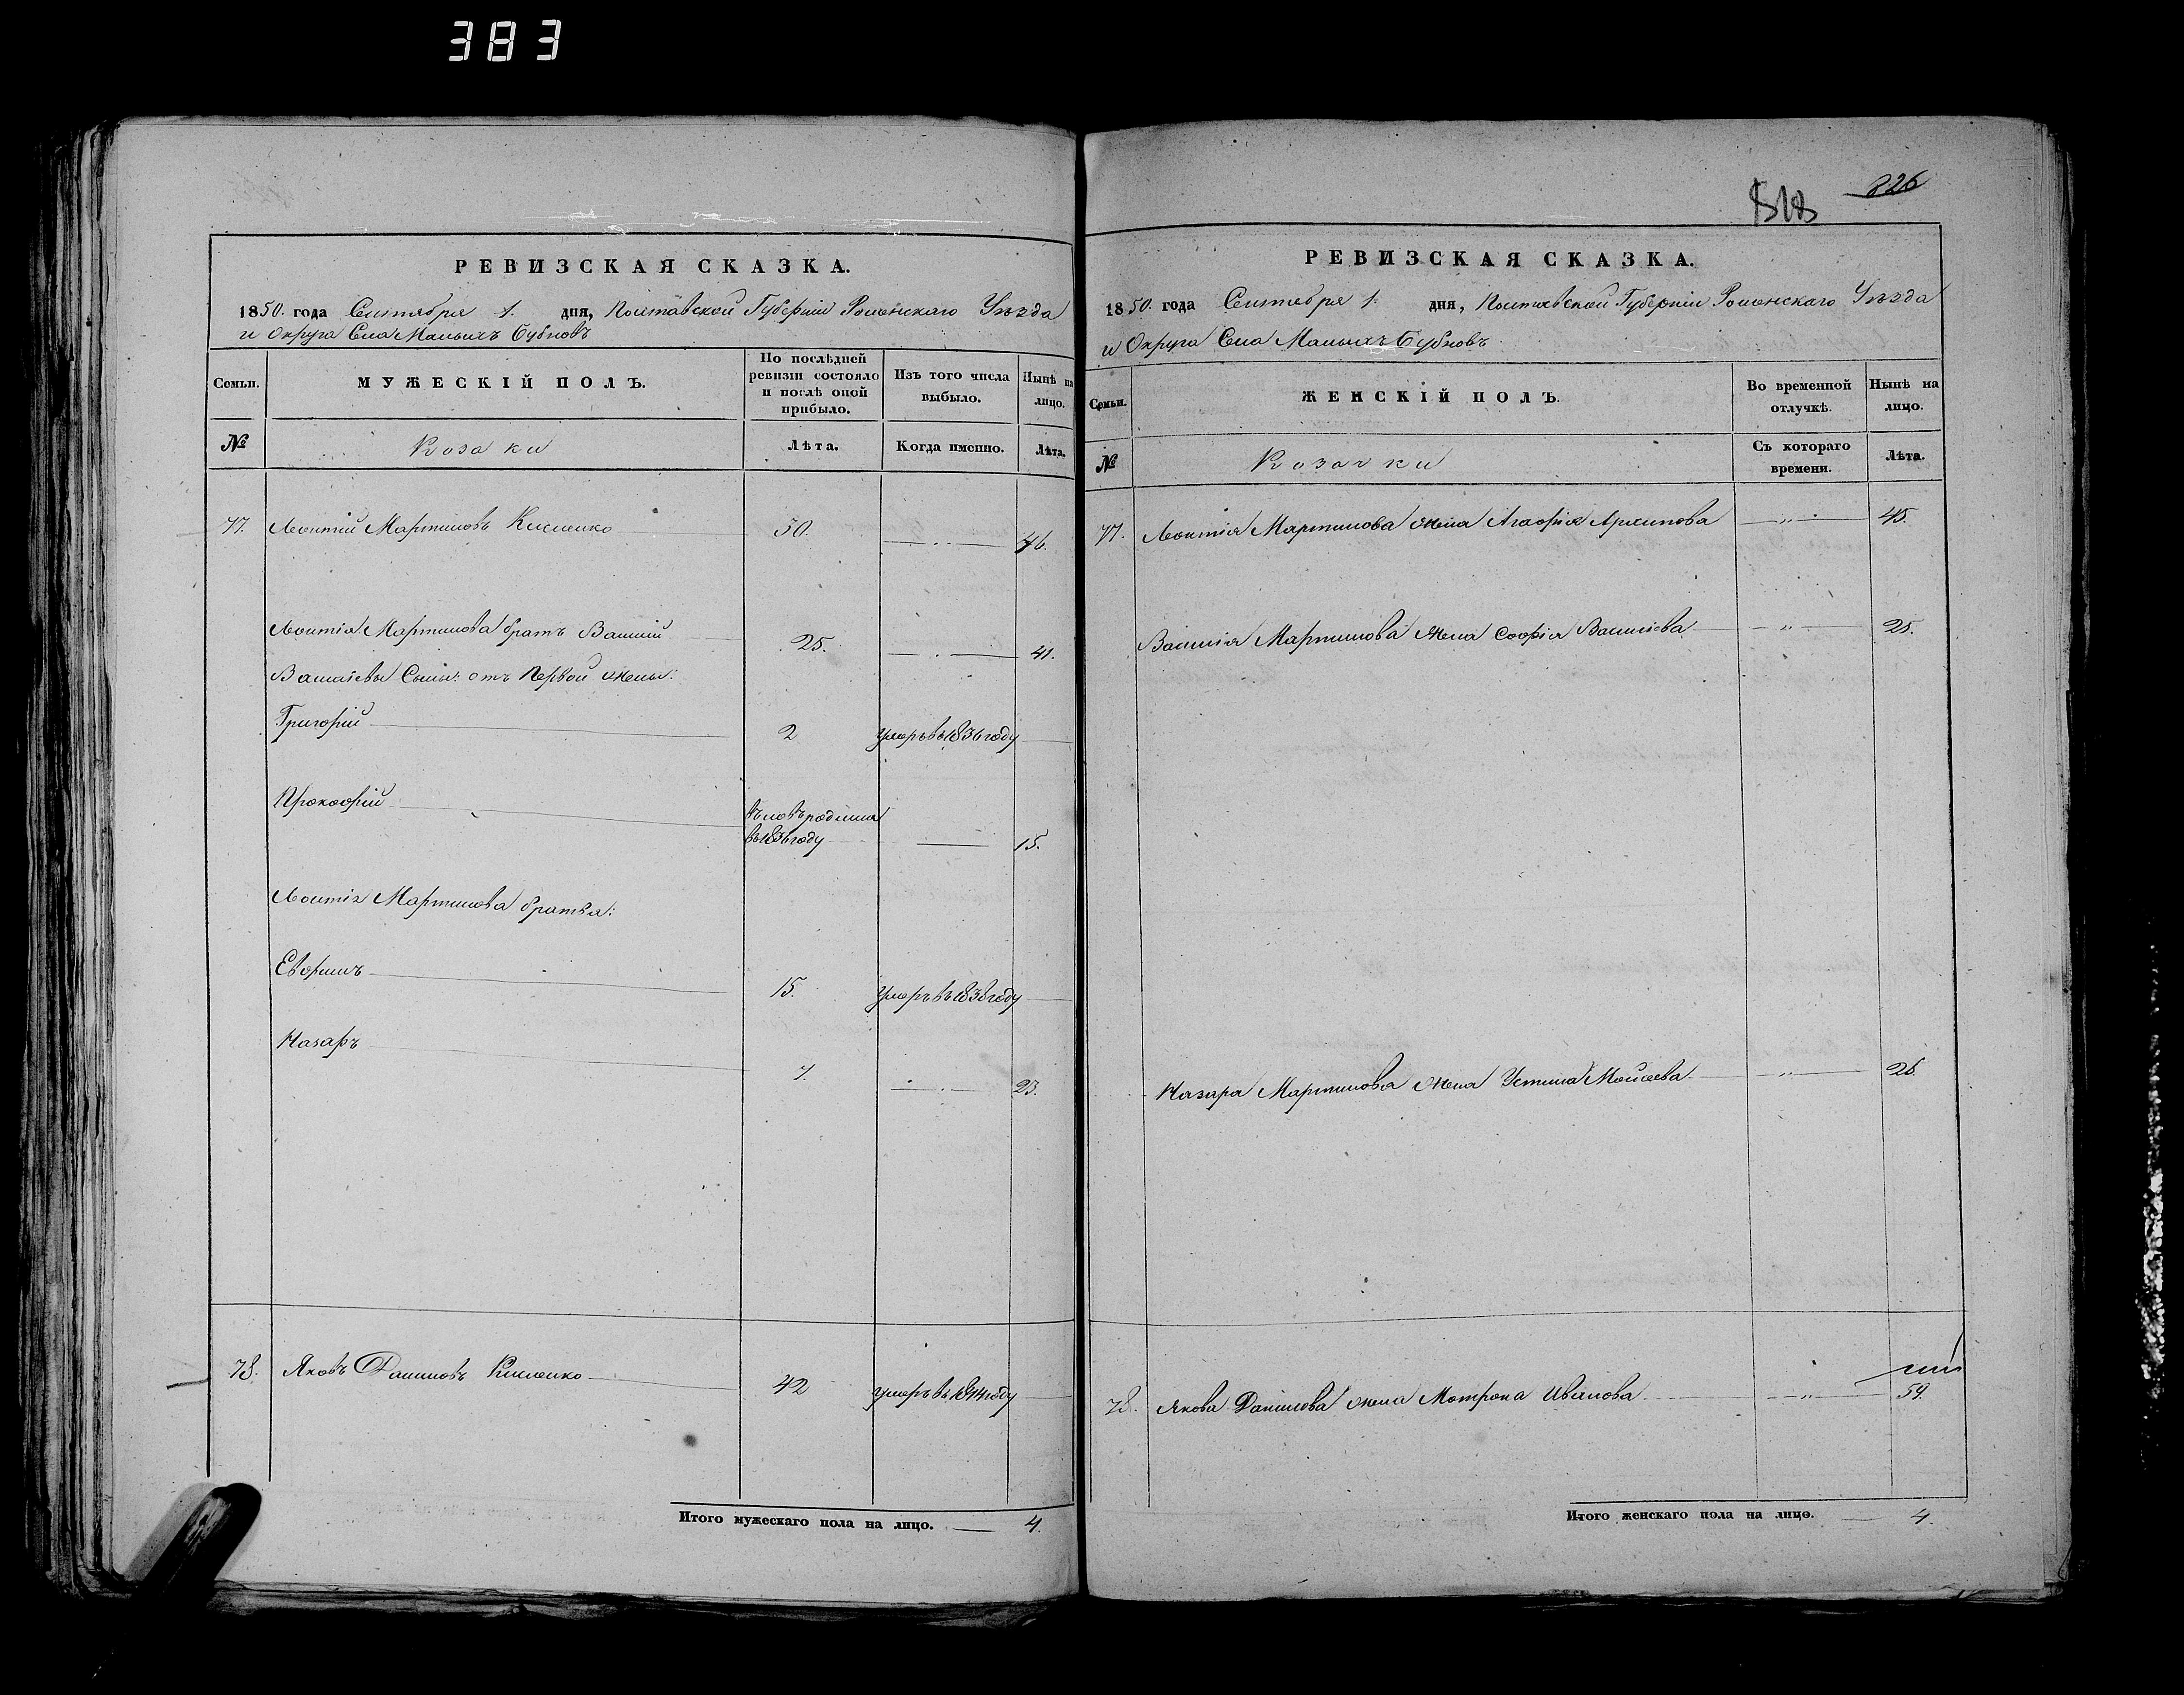 383
РЕВИЗСКАЯ СКАЗКА.
1850. года Сентября 1. дня, Полтавской Губернии Роменскаго Уѣзда
и Округа Села Малыхъ Бубновъ
Семьи.
МУЖЕСКІЙ ПОЛЪ.
По послѣдней
ревизіи состояло
и послѣ оной
прибыло.
Изъ того числа
выбыло.
Нынѣ на
лицо.
№
Козаки
Лѣта.
Когда именно.
Лѣта.
77. Леонтій Мартиновъ 30. 46.
Леонтія Мартинова братъ Василій 25. 41.
Василіевы Сыны: отъ первой жены:
Григорій 2 умеръ въ 1836 году
Прокофій
въ 1836 году 15.
Леонтія Мартинова братья:
Евфимъ 15. умеръ въ 1838 году
Назаръ 7. 23.
78. Яковъ Даниловъ 42 умеръ въ 1844 году
Итого мужескаго пола на лицо. 4.
226
518
РЕВИЗСКАЯ СКАЗКА.
1850. года Сентября 1. дня, Полтавской Губерніи Роменскаго Уѣзда
и Округа Села Малыхъ Бубновъ.
Семьи.
ЖЕНСКІЙ ПОЛЪ.
Во временной
отлучкѣ.
Нынѣ на
лицо.
№
Козачки
Съ котораго
времени.
Лѣта.
77. Леонтія Мартинова жена Агафія Архипова 45.
Василія Мартинова жена Софія Василіева 25.
Назара Мартинова жена Устина Мойсеева 26.
78. Якова Данилова жена Мотрона Иванова 59.
Итого женскаго пола на лицо. 4.